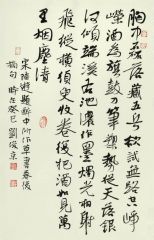 胸中磊落藏五兵欲試無路空崢
嶸酒為旗鼓刀筆槊勢從天落銀
河傾端溪石池濃作墨燭光相射
飛縱橫須臾收卷復把酒如見萬
里烟塵清
宋陸游題醉中所作草書卷後
摘句 時在癸巳 劉俊京